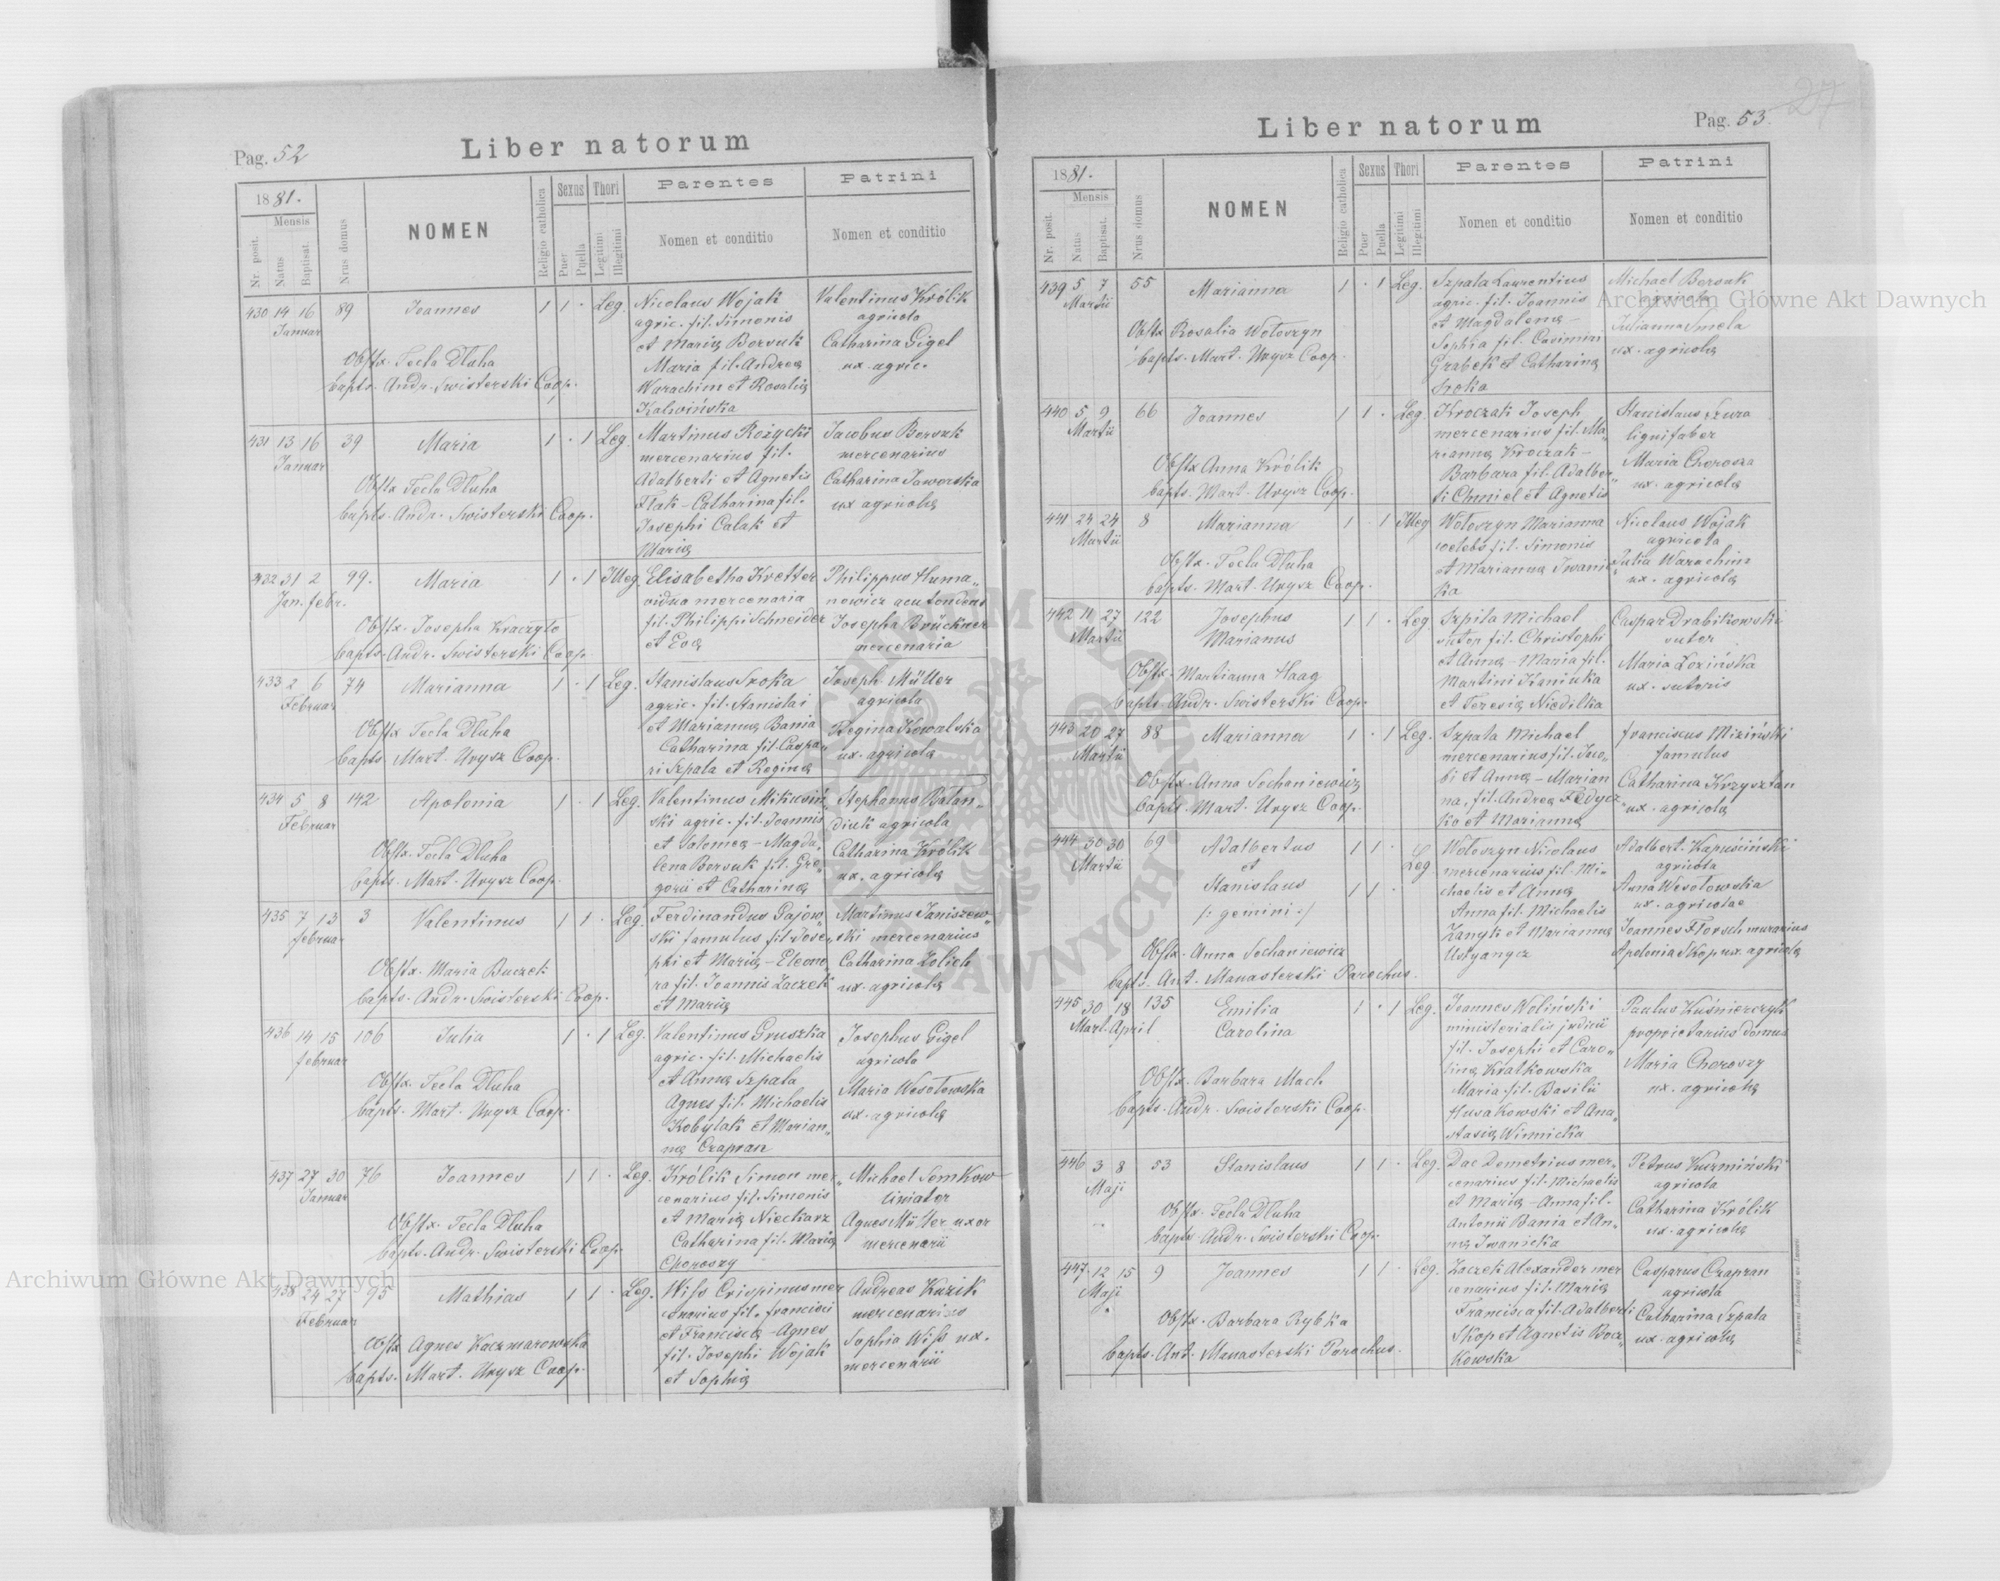 Pag. 52
Liber natorum
1881.
Mensis
Nr. posit.
Natus
Baptisat.
Nrus domus
NOMEN
Religio catholica
Sexus
Puer
Puella
Thori
Legitimi
Illegitimi
Parentes
Nomen et conditio
Patrini
Nomen et conditio
430 14 16 89 Joannes 1 1 · Leg. Nicolaus Wojak Valentinus Królik
Januar agric. fil. Simonis agricola
et Mariæ Borsuk Catharina Gigel
Obstx. Tecla Dluha Maria fil. Andreæ ux. agric.
bapts. Andr. Swisterski Coop. Warachim et Rosaliæ
Kaliwińska
431 13 16 39 Maria 1 · 1 Leg. Martinus Rożycki Jacobus Borsuk
Januar mercenarius fil. mercenarius
Obstx Tecla Dluha Adalberti et Agnetis Catharina Jaworska
bapts. Andr. Swisterski Coop. Flak - Catharina fil. ux agricolæ
Josephi Calak et
Mariæ
432 31 2 99. Maria 1 · 1 Illeg. Elisabetha Kretter Philippus Huma„
Jan. febr. vidua mercenaria nowicz acu tondens
Obstx. Josepha Kraczyło fil. Philippi Schneider Josepha Brückner
bapts. Andr. Swisterski Coop. et Evæ mercenaria
433 2 6 74 Marianna 1 · 1 Leg. Stanislaus Sroka Joseph Müller
Februar agric. fil. Stanislai agricola
Obstx Tecla Dluha et Mariannæ Bania Regina Kowalska
bapts Mart. Urysz Coop. Catharina fil. Caspa„ ux. agricolæ
ri Szpala et Reginæ
434 5 8 142 Apolonia 1 · 1 Leg. Valentinus Mikusiń„ Stephanus Bałan„
Februar ski agric. fil. Joannis diuk agricola
Obstx. Tecla Dluha et Salomeæ - Magda„ Catharina Królik
bapts. Mart. Urysz Coop. lena Borsuk fil. Gre„ ux. agricolæ
gorii et Catharinæ
435 7 13 3 Valentinus 1 1 · Leg. Ferdinandus Gajow„ Martinus Janiszew„
februar ski famulus fil. Jose„ ski mercenarius
Obstx. Maria Buczek phi et Mariæ - Eleono„ Catharina Zolich
bapts. Andr. Swisterski Coop. ra fil. Joannis Zaczek ux. agricolæ
et Mariæ
436 14 15 106 Julia 1 · 1 Leg. Valentinus Gruszka Josephus Gigel
februar agric. fil. Michaelis agricola
Obstx. Tecla Dluha et Annæ Szpala Maria Wesołowska
bapts. Mart. Urysz Coop. Agnes fil. Michaelis ux. agricolæ
Kobylak et Marian„
næ Czapran
437 27 30 76 Joannes 1 1 · Leg. Królik Simon mer„ Michael Semkow
Januar cenarius fil. Simonis liniator
Obstx. Tecla Dluha et Mariæ Nieckarz Agnes Müller uxor
bapts. Andr. Swisterski Coop. Catharina fil. Mariæ mercenarii
Choroszy
438 24 27 95 Mathias 1 1 · Leg. Wiss Crispinus mer Andreas Kuzik
Februar cenarius fil. francisci mercenarius
Obstx Agnes Kaczmarowska et Franciscæ - Agnes Sophia Wiss ux.
bapts. Mart. Urysz Coop. fil. Josephi Wojak mercenarii
et Sophiæ
Pag. 53.
27
Liber natorum
1881.
Mensis
Nr. posit.
Natus
Baptisat.
Nrus domus
NOMEN
Religio catholica
Sexus
Puer
Puella
Thori
Legitimi
Illegitimi
Parentes
Nomen et conditio
Patrini
Nomen et conditio
439 5 7 55 Marianna 1 · 1 Leg. Szpala Laurentius Michael Borsuk
Martii agric. fil. Joannis agricola
Obstx Rosalia Wołoszyn et Magdalenæ - Julianna Smela
bapts. Mart. Urysz Coop. Sophia fil. Casimiri ux. agricolæ
Grabek et Catharinæ
Sroka
440 5 9 66 Joannes 1 1 · Leg. Kroczak Joseph Stanislaus Szura
Martii mercenarius fil. Ma„ lignifaber
Obstx Anna Królik riannæ Kroczak - Maria Chorosza
bapts. Mart. Urysz Coop. Barbara fil. Adalber„ ux. agricolæ
ti Chmiel et Agnetis
441 24 24 8 Marianna 1 · 1 Illeg Wołoszyn Marianna Nicolaus Wojak
Martii coelebs fil. Simonis agricola
Obstx. Tecla Dluha et Mariannæ Iwanic„ Julia Warachim
bapts. Mart. Urysz Coop. ka ux. agricolæ
442 11 27 122 Josephus 1 1 · Leg Szpila Michael Caspar Drabikowski
Martii Marianus sutor fil. Christophi sutor
Obstx. Martianna Haag et Annæ - Maria fil. Maria Łozińska
bapts Andr. Swisterski Coop. Martini Kaniuka ux. sutoris
et Teresiæ Niedilka
443 20 27 88 Marianna 1 · 1 Leg. Szpala Michael franciscus Miziński
Martii mercenarius fil. Jaco„ famulus
Obstx. Anna Sochaniewicz bi et Annæ - Marian Catharina Krzysztan
bapts. Mart. Urysz Coop. na, fil. Andreæ Fedycz„ ux. agricolæ
ko et Mariannæ
444 30 30 69 Adalbertus 1 1 · Leg Wołoszyn Nicolaus Adalbert. Kapuściński
Martii et mercenarius fil. Mi„ agricola
Stanislaus 1 1 · chaelis et Annæ Anna Wesołowska
/: gemini :/ Anna fil. Michaelis ux. agricolae
Obstx. Anna Sochaniewicz Zanyk et Mariannæ Joannes Florsch murarius
bapt. Ant. Manasterski Parochus. Ustyanycz Apolonia Skop ux. agricolæ
445 30 18 135 Emilia 1 · 1 Leg. Joannes Woliński Paulus Kuśnierczyk
Mart. April Carolina ministerialis judicii proprietarius domus
fil. Josephi et Caro„ Maria Choroszy
Obstx. Barbara Mach linæ Kratkowska ux. agricolæ
bapts. Andr. Swisterski Coop. Maria fil. Basilii
Husakowski et Ana„
stasiæ Winnicka
446 3 8 53 Stanislaus 1 1 · Leg. Dac Demetrius mer„ Petrus Kuzmiński
Maji cenarius fil. Michaelis agricola
Obstx. Tecla Dluha et Mariæ - Anna fil. Catharina Królik
bapts Andr. Swisterski Coop. Antonii Bania et An„ ux. agricolæ
næ Iwanicka
447. 12 15 9 Joannes 1 1 · Leg. Zaczek Alexander mer Casparus Czapran
Maji cenarius fil. Mariæ agricola
Obstx. Barbara Rybka Francisca fil. Adalberti Catharina Szpala
bapts. Ant. Manasterski Parochus. Skop et Agnetis Bocz„ ux. agricolæ
kowska
Archiwum Główne Akt Dawnych
Archiwum Główne Akt Dawnych